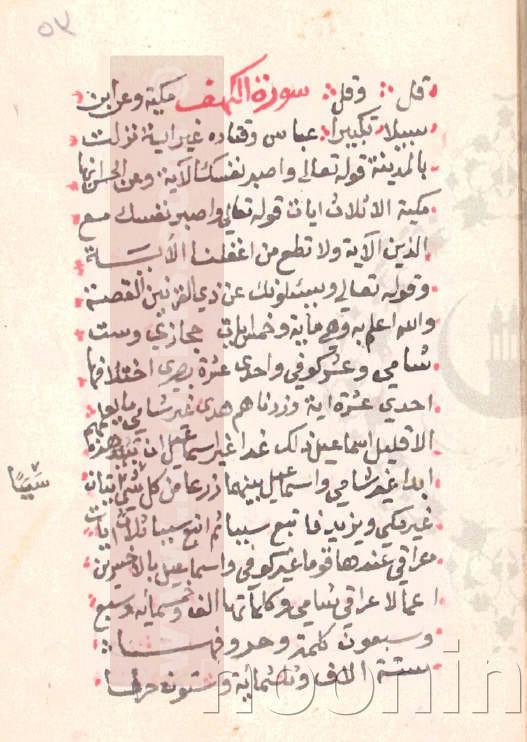 ٥٢
قل وقل سورة الكهف مكية وعن ابن
سبيلا تكبيرا عباس وقتاده غير اية نزلت
بالمدينة قوله تعالى واصبر نفسك الآية وعن الحسن انها
مكية الا ثلاث ايات قوله تعالى واصبر نفسك مع
الذين الآية ولا تطع من اغفلنا الآيـة
وقوله تعالى ويسئلونك عن ذي القرنين القصة
والله اعلم به وهي ماية وخمس ايات حجازي وست
شامي وعشر كوفي واحدى عشرة بصرى اختلافها
احدي عشرة اية وزدناهم هدى غير شامي ما يعلمهم
الا قليل اسماعيل ذلك غدا غير اسماعيل ان تبيد هذه
ابدا غير شامي واسماعيل بينهما زرعا من كل شئ اثنان
سببا
غير مكي ويزيد فاتبع سببا ثم اتبع سببا ثلاث ايات
عراقي عندها قوما غير كوفي واسماعيل بالاخسرين
اعمالا عراقي شامي وكلماتها الف وخمسمائه وسبع
وسبعون كلمة وحروفهـــا
ستة الاف وثلثماية وستون حرفا
noorin